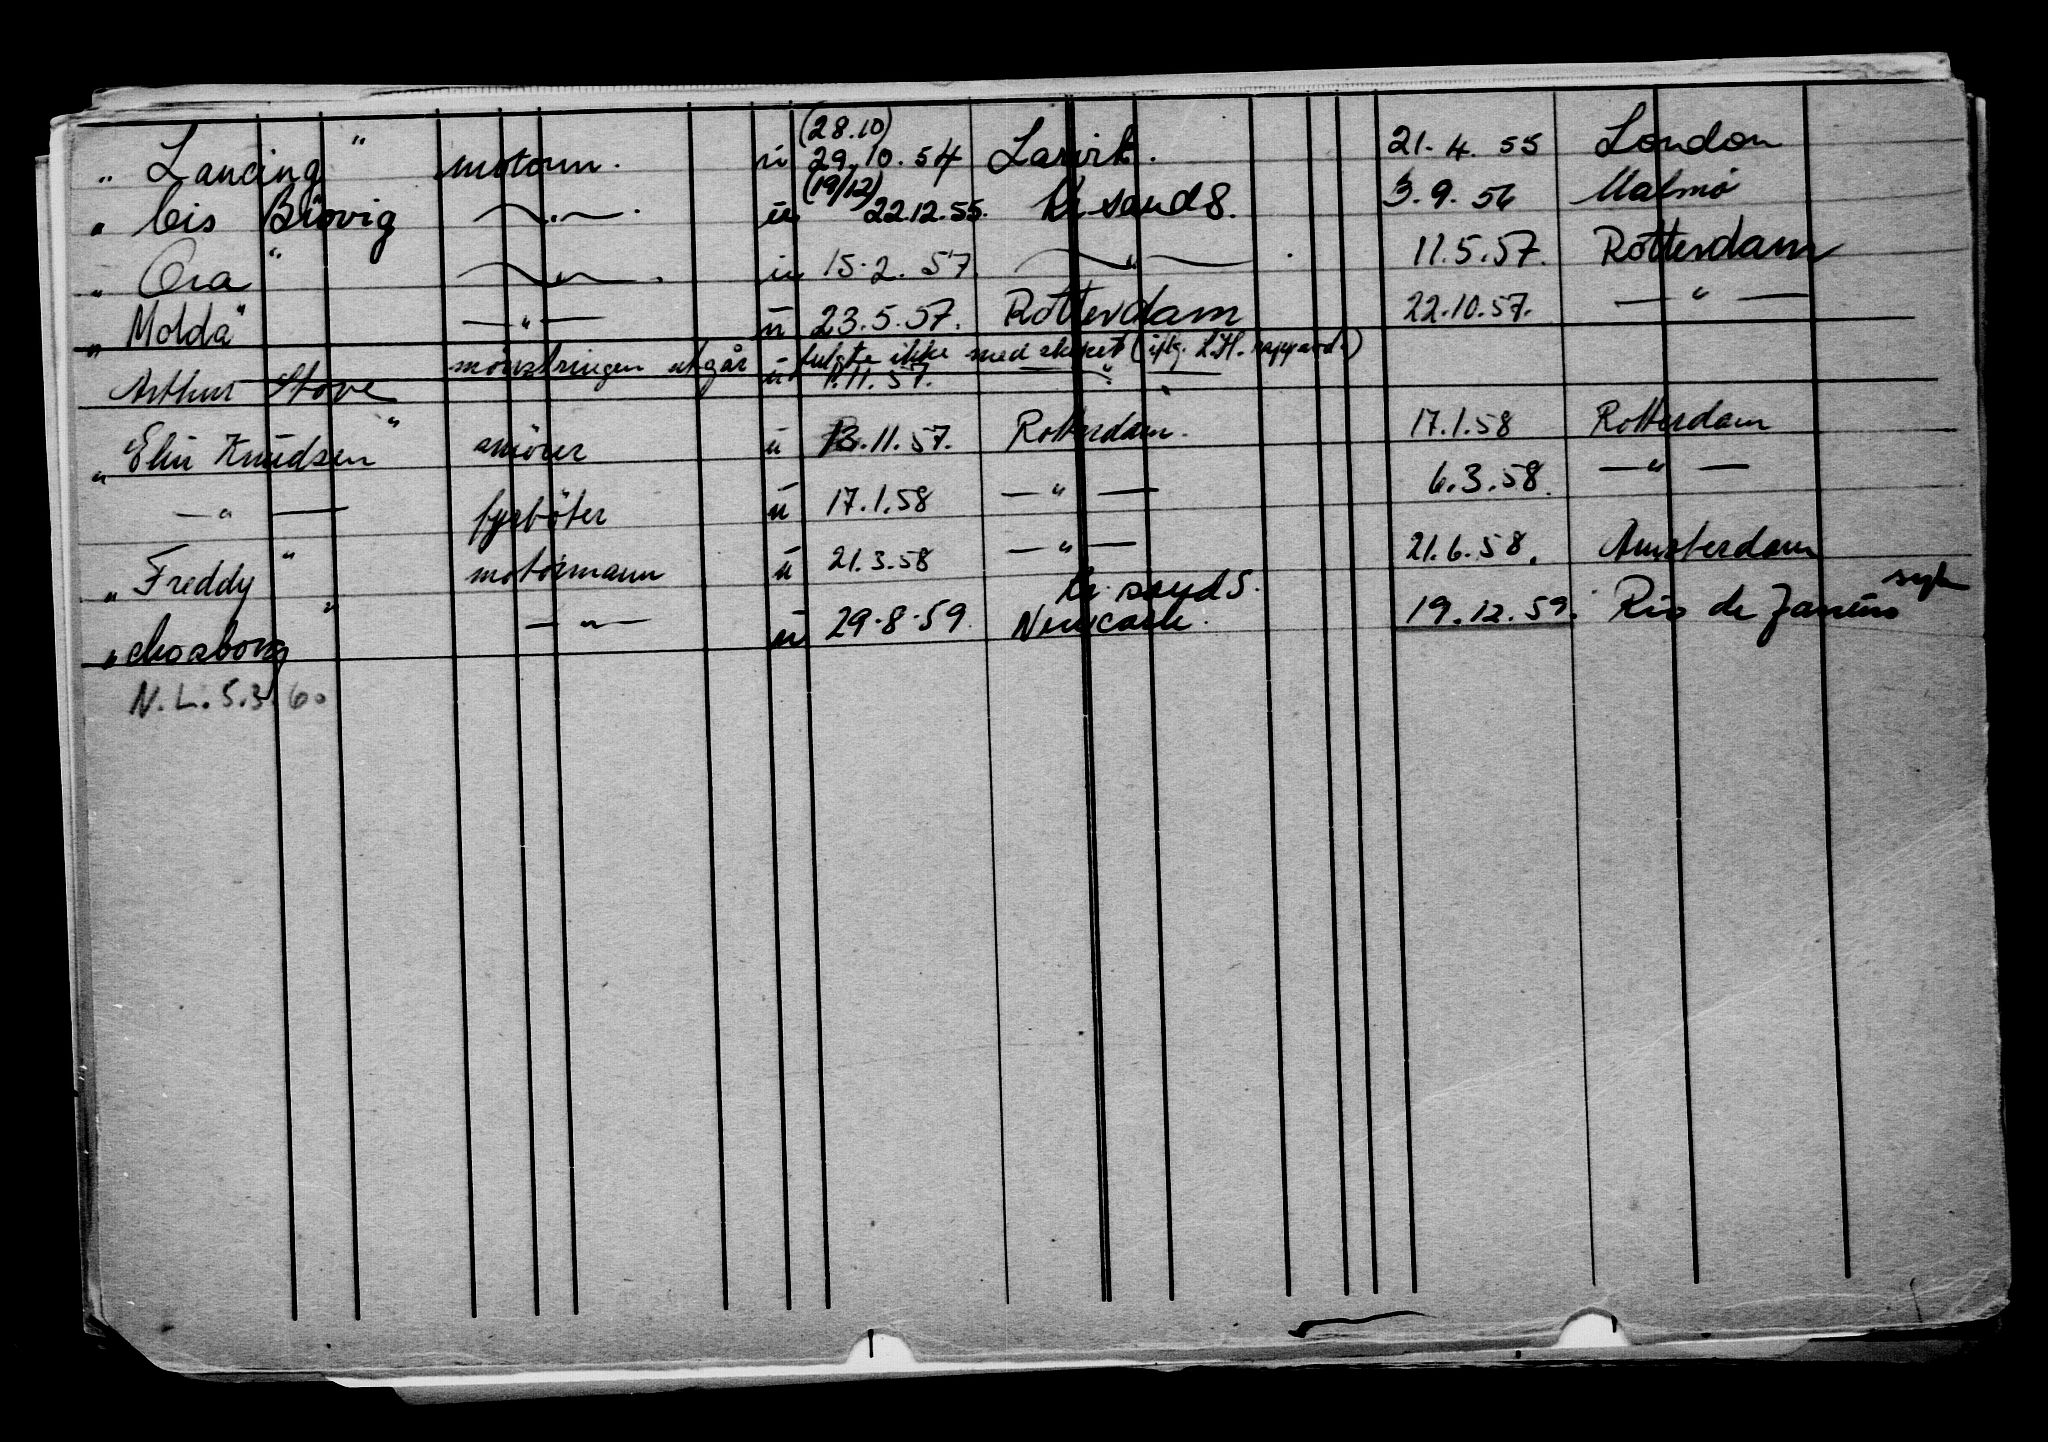 (28.10)
" Lancing " motorm. u 29.10.54 Larvik. 21.4.55 London
(19/12)
" Cis Brövig —"—. u 22.12.55. Kr sand S. 3.9.56 Malmö
" Ora " —"—. u 15.2.57 —"—. 11.5.57. Rotterdam
" Molda" —"— u 23.5.57. Rotterdam 22.10.57. —"—
" Arthur Stove " mönstringen utgår fulgte ikke med skipet (iflg. S.H. rapport.)
u 1.11.57. —"—.
" Elin Knudsen smörer u 13.11.57. Rotterdam. 17.1.58 Rotterdam
—"— fyrböter u 17.1.58 —"— 6.3.58. —"—
" Freddy " motormann u 21.3.58 —"— 21.6.58. Amsterdam
Kr. sand S.
" Mosborg " —"— u 29.8.59. Newcastle. 19.12.59. Rio de Janeiro syk
N.L. 5.3.60